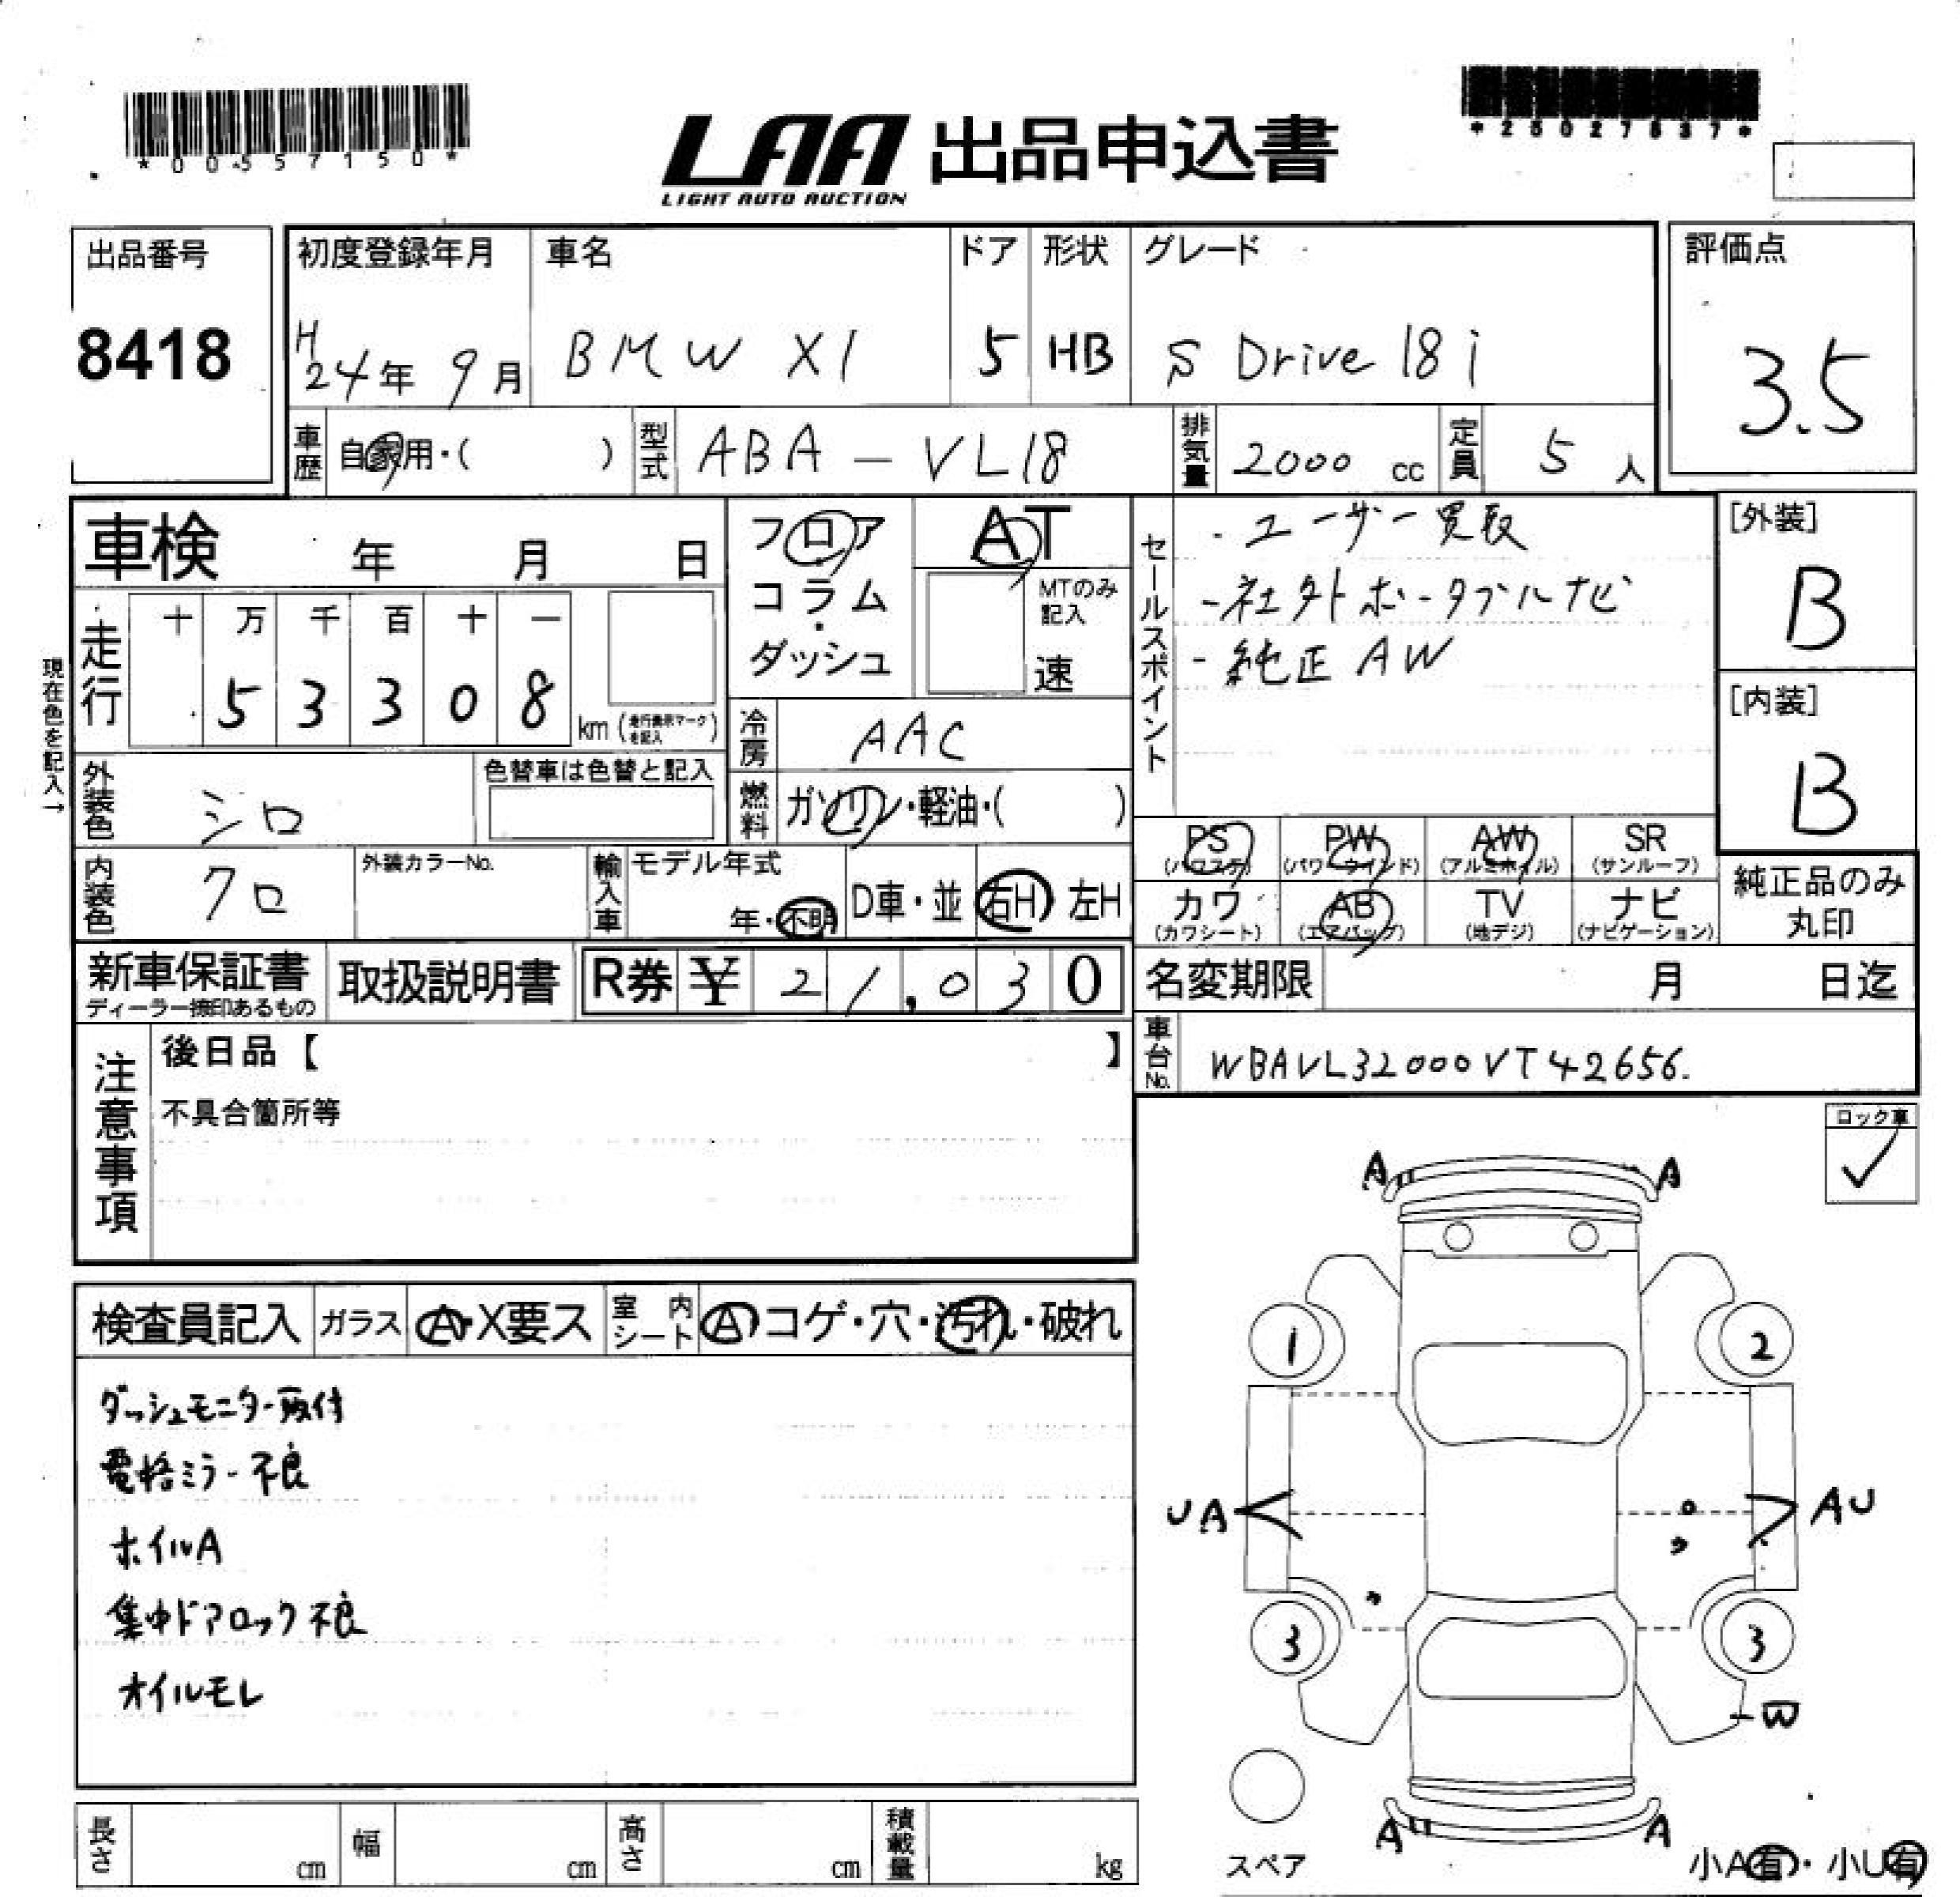 *00557150*
*25027537*
LAA 出品申込書
LIGHT AUTO AUCTION
出品番号
8418
初度登録年月
H24年 9月
車名
BMW X1
ドア
5
形状
HB
グレード
S Drive 18i
評価点
3.5
車歴 自家用・( )
型式 ABA-VL18
排気量 2000 cc
定員 5 人
車検 年 月 日
フロア
コラム
・
ダッシュ
AT
MTのみ
記入
速
セールスポイント
・ユーザー買取
-社外ポータブルナビ
-純正AW
[外装]
B
[内装]
B
現在色を記入→
走行
十 万 千 百 十 一
5 3 3 0 8 km (走行表示マークを記入)
冷房 AAC
外装色 シロ
色替車は色替と記入
燃料 ガソリン・軽油・( )
内装色 クロ
外装カラーNo.
輸入車 モデル年式
年・不明
D車・並
右H 左H
PS (パワステ)
PW (パワーウインド)
AW (アルミホイル)
SR (サンルーフ)
カワ (カワシート)
AB (エアバッグ)
TV (地デジ)
ナビ (ナビゲーション)
純正品のみ
丸印
新車保証書
ディーラー捺印あるもの
取扱説明書
R券 ¥ 21,030
名変期限 月 日迄
車台No. WBAVL32000VT42656.
注意事項
後日品【 】
不具合箇所等
ロック車
✓
検査員記入 ガラス A・X要ス 室内シート A コゲ・穴・汚れ・破れ
ダッシュモニター取付
電格ミラー不良
ホイルA
集中ドアロック不良
オイルモレ
A A
1 2
UA AU
3 3
W
A A
スペア
小A有・小U有
長さ cm
幅 cm
高さ cm
積載量 kg